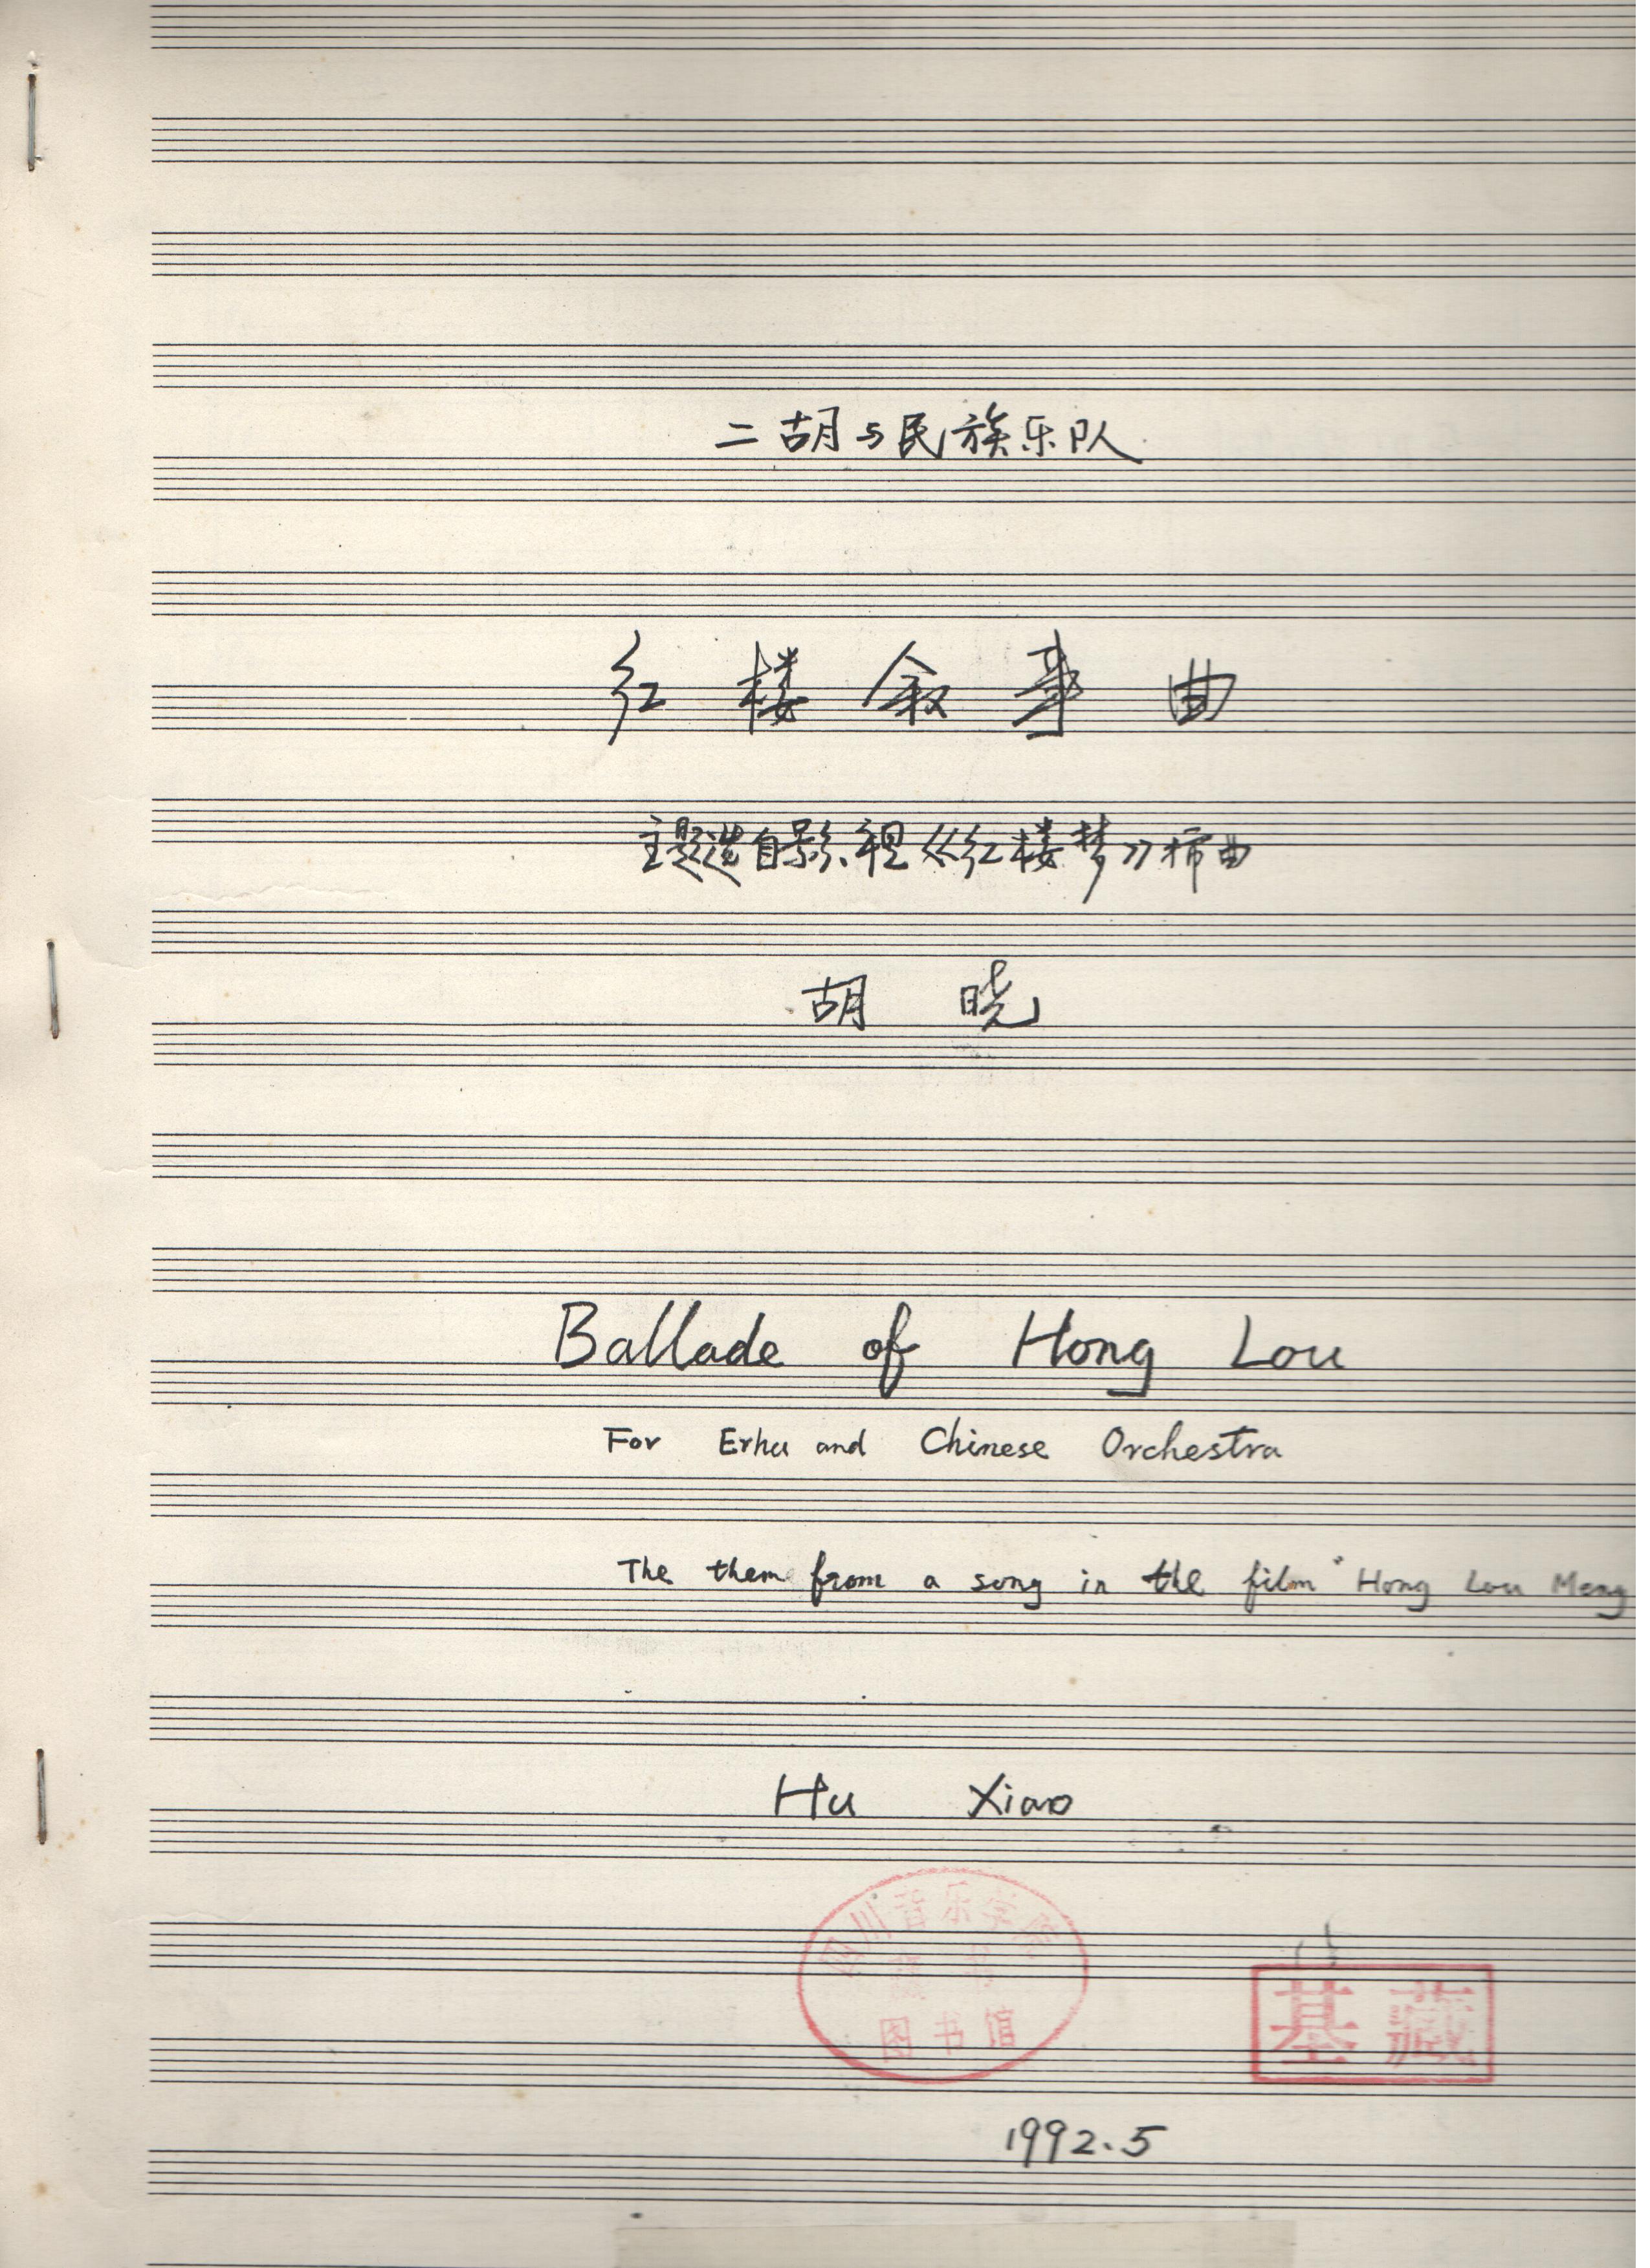 二胡与民族乐队
红楼叙事曲
主题选自影视《红楼梦》插曲
胡晓
Ballade of Hong Lou
For Erhu and Chinese Orchestra
The theme from a song in the film "Hong Lou Meng
Hu Xiao
四川音乐学院
藏书
图书馆
基藏
1992.5